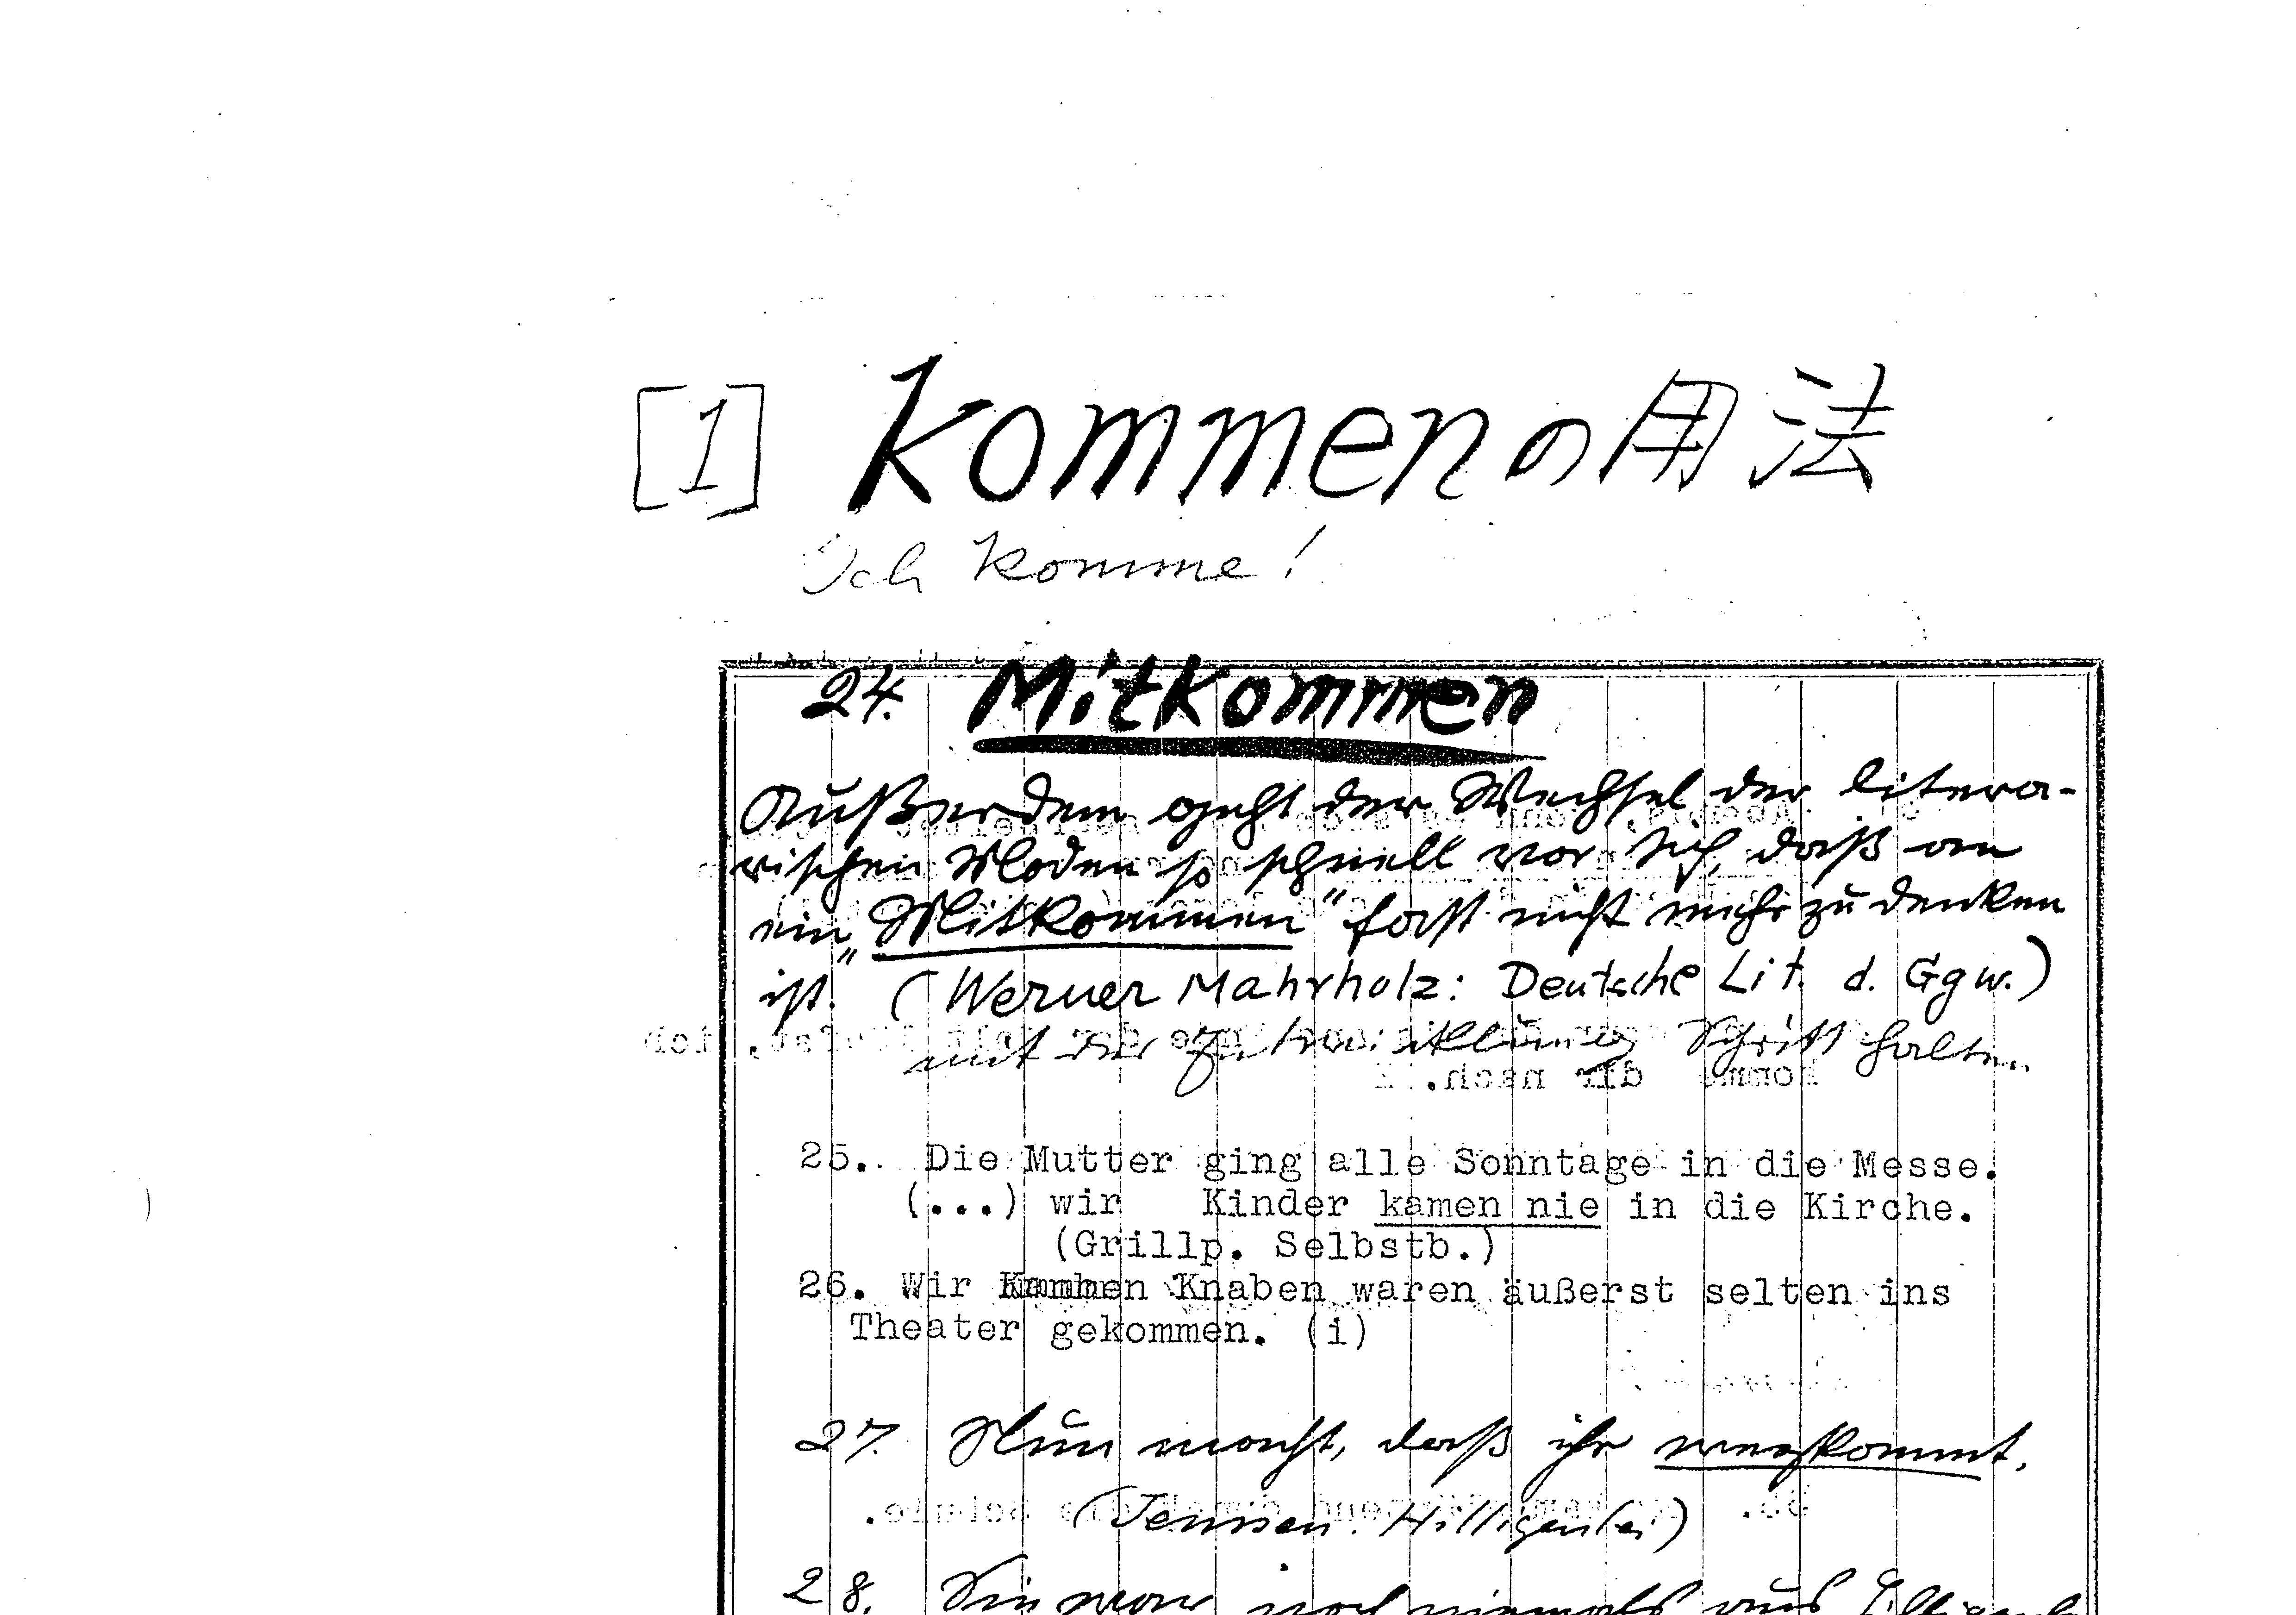 [1] kommenの用法
Ich komme!
24. Mitkommen
Außerdem geht der Wechsel der litera-
rischen Moden so schnell vor sich, daß an
ein „Mitkommen" fast nicht mehr zu denken
ist. (Werner Mahrholz: Deutsche Lit. d. Ggw.)
mit der Schritt halten
25. Die Mutter ging alle Sonntage in die Messe.
(...) wir Kinder kamen nie in die Kirche.
(Grillp. Selbstb.)
26. Wir Knaben waren äußerst selten ins
Theater gekommen. (i)
27. Nun macht, daß ihr wegkommt.
(Hilligenlei)
28. Sie war noch niemals aus